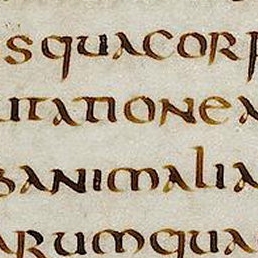 squacorp
itationea
ganimalia
arumquae